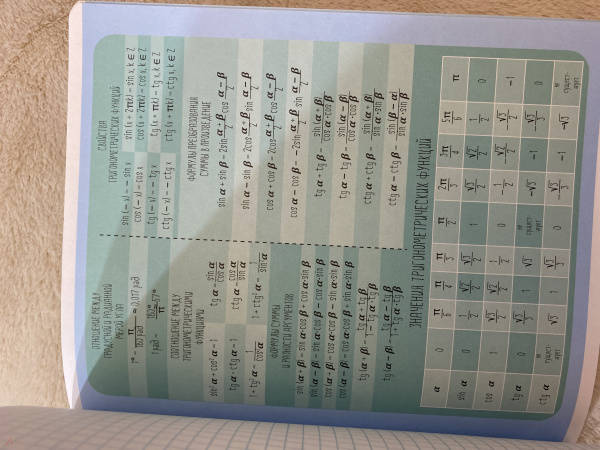 ОТНОШЕНИЕ МЕЖДУ
ГРАДУСНОЙ И РАДИАННОЙ
МЕРОЙ УГЛА
1° = π/180 рад ≈ 0,017 рад
1 рад = 180°/π ≈ 57°
СООТНОШЕНИЕ МЕЖДУ
ТРИГОНОМЕТРИЧЕСКИМИ
ФУНКЦИЯМИ
sin² α + cos² α = 1 tg α = sin α/cos α
tg α · ctg α = 1 ctg α = cos α/sin α
1 + tg² α = 1/cos² α 1 + ctg² α = 1/sin² α
ФОРМУЛЫ СУММЫ
И РАЗНОСТИ АРГУМЕНТОВ
sin (α + β) = sin α · cos β + cos α · sin β
sin (α − β) = sin α · cos β − cos α · sin β
cos (α + β) = cos α · cos β − sin α · sin β
cos (α − β) = cos α · cos β + sin α · sin β
tg (α + β) = tg α + tg β/1 − tg α · tg β
tg (α − β) = tg α − tg β/1 + tg α · tg β
СВОЙСТВА
ТРИГОНОМЕТРИЧЕСКИХ ФУНКЦИЙ
sin (− x) = − sin x sin (x + 2πk) = sin x, k ∈ Z
cos (− x) = cos x cos (x + 2πk) = cos x, k ∈ Z
tg (− x) = − tg x tg (x + πk) = tg x, k ∈ Z
ctg (− x) = − ctg x ctg (x + πk) = ctg x, k ∈ Z
ФОРМУЛЫ ПРЕОБРАЗОВАНИЯ
СУММЫ В ПРОИЗВЕДЕНИЕ
sin α + sin β = 2sin α + β/2 cos α − β/2
sin α − sin β = 2cos α + β/2 sin α − β/2
cos α + cos β = 2cos α + β/2 cos α − β/2
cos α − cos β = − 2sin α + β/2 sin α − β/2
tg α + tg β = sin (α + β)/cos α · cos β
tg α − tg β = sin (α − β)/cos α · cos β
ctg α + ctg β = sin (α + β)/sin α · sin β
ctg α − ctg β = sin (β − α)/sin α · sin β
ЗНАЧЕНИЯ ТРИГОНОМЕТРИЧЕСКИХ ФУНКЦИЙ
α 0 π/6 π/4 π/3 π/2 2π/3 3π/4 5π/6 π
sin α 0 1/2 √2/2 √3/2 1 √3/2 √2/2 1/2 0
cos α 1 √3/2 √2/2 1/2 0 −1/2 −√2/2 −√3/2 −1
tg α 0 √3/3 1 √3 не существует −√3 −1 −√3/3 0
ctg α не существует √3 1 √3/3 0 −√3/3 −1 −√3 не существует